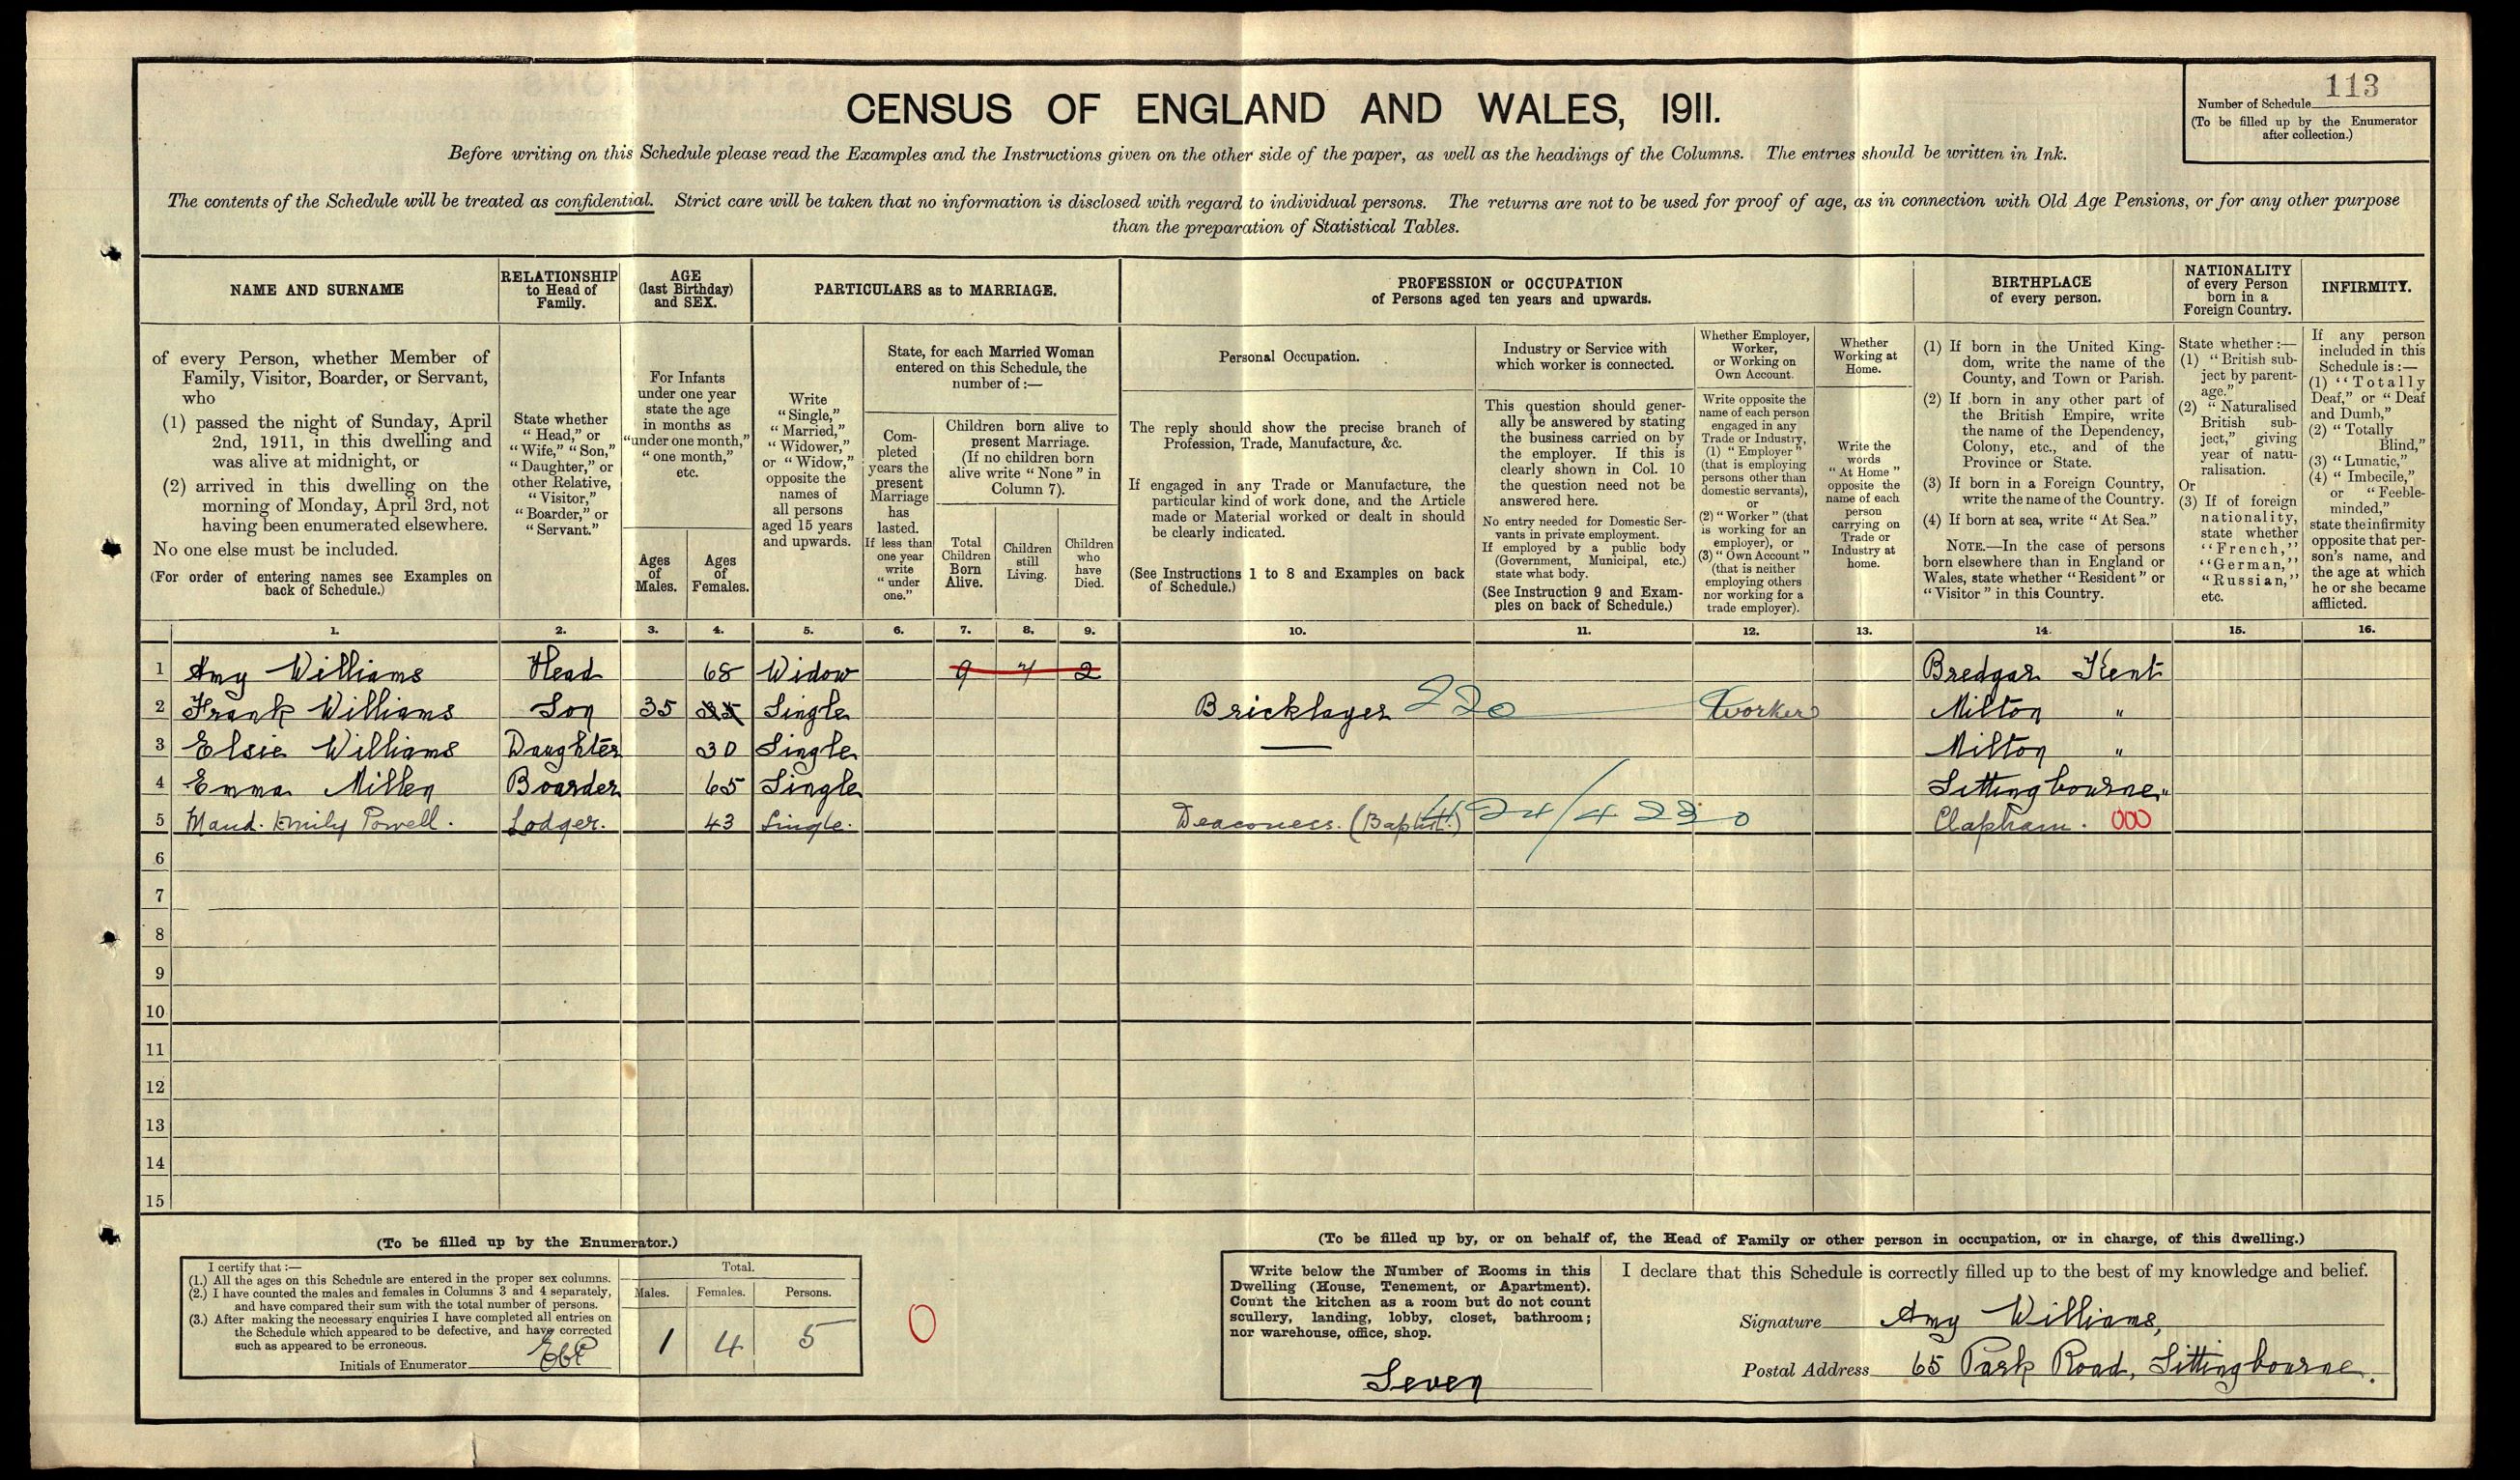 113
Number of Schedule
(To be filled up by the Enumerator
after collection.)
CENSUS OF ENGLAND AND WALES, 1911.
Before writing on this Schedule please read the Examples and the Instructions given on the other side of the paper, as well as the headings of the Columns. The entries should be written in Ink.
The contents of the Schedule will be treated as confidential. Strict care will be taken that no information is disclosed with regard to individual persons. The returns are not to be used for proof of age, as in connection with Old Age Pensions, or for any other purpose
than the preparation of Statistical Tables.
NAME AND SURNAME
of every Person, whether Member of
Family, Visitor, Boarder, or Servant,
who
(1) passed the night of Sunday, April
2nd, 1911, in this dwelling and
was alive at midnight, or
(2) arrived in this dwelling on the
morning of Monday, April 3rd, not
having been enumerated elsewhere.
No one else must be included.
(For order of entering names see Examples on
back of Schedule.)
RELATIONSHIP
to Head of
Family.
State whether
"Head," or
"Wife," "Son,"
"Daughter," or
other Relative,
"Visitor,"
"Boarder," or
"Servant."
AGE
(last Birthday)
and SEX.
For Infants
under one year
state the age
in months as
"under one month,"
"one month,"
etc.
Ages
of
Males.
Ages
of
Females.
PARTICULARS as to MARRIAGE.
Write
"Single,"
"Married,"
"Widower,"
or "Widow,"
opposite the
names of
all persons
aged 15 years
and upwards.
State, for each Married Woman
entered on this Schedule, the
number of :—
Com-
pleted
years the
present
Marriage
has
lasted.
If less than
one year
write
"under
one."
Children born alive to
present Marriage.
(If no children born
alive write "None" in
Column 7).
Total
Children
Born
Alive.
Children
still
Living.
Children
who
have
Died.
PROFESSION or OCCUPATION
of Persons aged ten years and upwards.
Personal Occupation.
The reply should show the precise branch of
Profession, Trade, Manufacture, &c.
If engaged in any Trade or Manufacture, the
particular kind of work done, and the Article
made or Material worked or dealt in should
be clearly indicated.
(See Instructions 1 to 8 and Examples on back
of Schedule.)
Industry or Service with
which worker is connected.
This question should gener-
ally be answered by stating
the business carried on by
the employer. If this is
clearly shown in Col. 10
the question need not be
answered here.
No entry needed for Domestic Ser-
vants in private employment.
If employed by a public body
(Government, Municipal, etc.)
state what body.
(See Instruction 9 and Exam-
ples on back of Schedule.)
Whether Employer,
Worker,
or Working on
Own Account.
Write opposite the
name of each person
engaged in any
Trade or Industry,
(1) "Employer"
(that is employing
persons other than
domestic servants),
or
(2) "Worker" (that
is working for an
employer), or
(3) "Own Account"
(that is neither
employing others
nor working for a
trade employer).
Whether
Working at
Home.
Write the
words
"At Home"
opposite the
name of each
person
carrying on
Trade or
Industry at
home.
BIRTHPLACE
of every person.
(1) If born in the United King-
dom, write the name of the
County, and Town or Parish.
(2) If born in any other part of
the British Empire, write
the name of the Dependency,
Colony, etc., and of the
Province or State.
(3) If born in a Foreign Country,
write the name of the Country.
(4) If born at sea, write "At Sea."
NOTE.—In the case of persons
born elsewhere than in England or
Wales, state whether "Resident" or
"Visitor" in this Country.
NATIONALITY
of every Person
born in a
Foreign Country.
State whether :—
(1) "British sub-
ject by parent-
age."
(2) "Naturalised
British sub-
ject," giving
year of natu-
ralisation.
Or
(3) If of foreign
nationality,
state whether
"French,"
"German,"
"Russian,"
etc.
INFIRMITY.
If any person
included in this
Schedule is :—
(1) "Totally
Deaf," or "Deaf
and Dumb,"
(2) "Totally
Blind,"
(3) "Lunatic,"
(4) "Imbecile,"
or "Feeble-
minded,"
state the infirmity
opposite that per-
son's name, and
the age at which
he or she became
afflicted.
1. 2. 3. 4. 5. 6. 7. 8. 9. 10. 11. 12. 13. 14. 15. 16.
1 Amy Williams Head 68 Widow 9 7 2 Bredgar Kent
2 Frank Williams Son 35 35 Single Bricklayer 220 Worker Milton "
3 Elsie Williams Daughter 30 Single — Milton "
4 Emma Millen Boarder 65 Single Sittingbourne "
5 Maud. Emily Powell. Lodger. 43 Single. Deaconess. (Baptist.) Clapham. 000
6
7
8
9
10
11
12
13
14
15
(To be filled up by the Enumerator.)
I certify that :—
(1.) All the ages on this Schedule are entered in the proper sex columns.
(2.) I have counted the males and females in Columns 3 and 4 separately,
and have compared their sum with the total number of persons.
(3.) After making the necessary enquiries I have completed all entries on
the Schedule which appeared to be defective, and have corrected
such as appeared to be erroneous.
Initials of Enumerator
Total.
Males. Females. Persons.
1 4 5
0
(To be filled up by, or on behalf of, the Head of Family or other person in occupation, or in charge, of this dwelling.)
Write below the Number of Rooms in this
Dwelling (House, Tenement, or Apartment).
Count the kitchen as a room but do not count
scullery, landing, lobby, closet, bathroom;
nor warehouse, office, shop.
Seven
I declare that this Schedule is correctly filled up to the best of my knowledge and belief.
Signature Amy Williams,
Postal Address 65 Park Road, Sittingbourne.